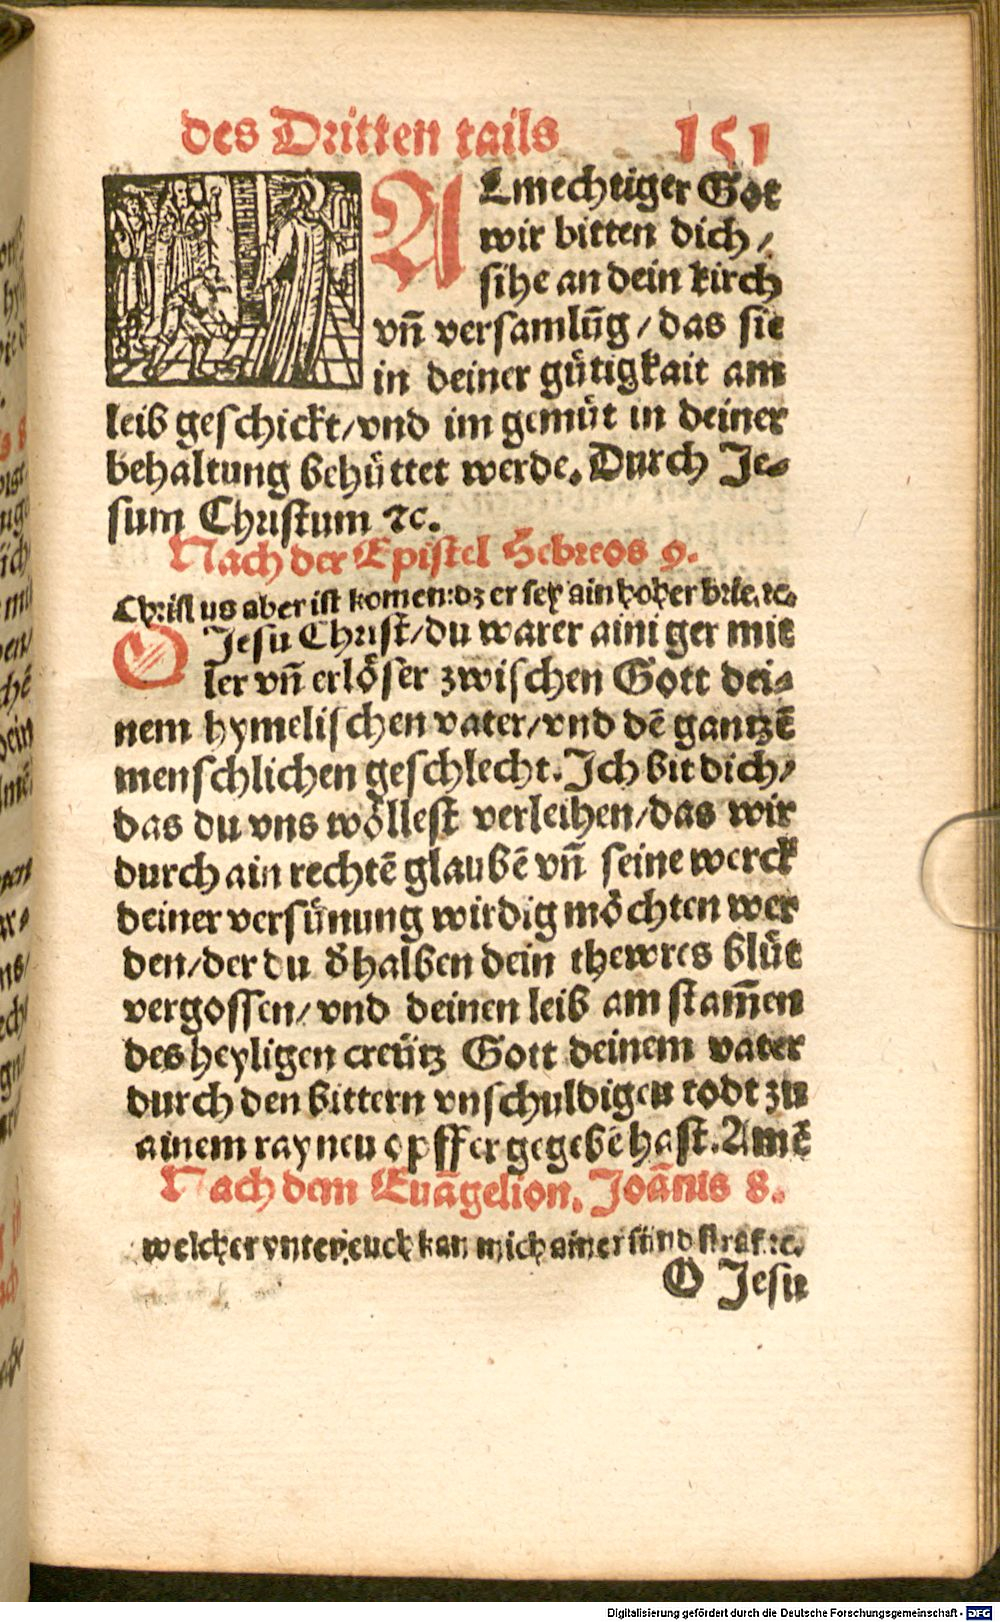 des Dritten tails 151
ALmechtiger Got
wir bitten dich /
sihe an dein kirch
vñ versamlūg / das sie
in deiner gütigkait am
leib geschickt / vnd im gemüt in deiner
behaltung behüttet werde. Durch Je-
sum Christum ⁊c.
Nach der Epistel Hebreos 9.
Christus aber ist komen: dz er sey ain hoher brie. ⁊c.
O Jesu Christ / du warer ainiger mit
ler vñ erlöser zwischen Gott dei-
nem hymelischen vater / vnd dē gantzē
menschlichen geschlecht. Ich bit dich /
das du vns wöllest verleihen / das wir
durch ain rechtē glaubē vñ seine werck
deiner versünung wirdig möchten wer
den / der du ðhalben dein thewres blüt
vergossen / vnd deinen leib am stam̄en
des heyligen creütz Gott deinem vater
durch den bittern vnschuldigen todt zu
ainem raynen opffer gegebē hast. Amē
Nach dem Euāgelion. Joānis 8.
welcher vnter euch kan mich ainer sünd straf. ⁊c.
O Jesu
Digitalisierung gefördert durch die Deutsche Forschungsgemeinschaft - DFG